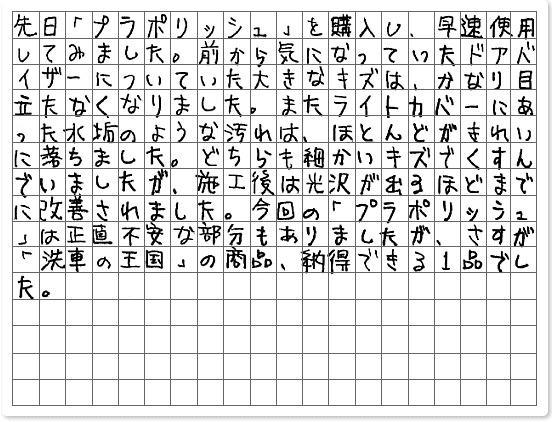 先日「プラポリッシュ」を購入し、早速使用
してみました。前から気になっていたドアバ
イザーについていた大きなキズは、かなり目
立たなくなりました。またライトカバーにあ
った水垢のような汚れは、ほとんどがきれい
に落ちました。どちらも細かいキズでくすん
でいましたが、施工後は光沢が出るほどまで
に改善されました。今回の「プラポリッシュ
」は正直不安な部分もありましたが、さすが
「洗車の王国」の商品、納得できる1品でし
た。